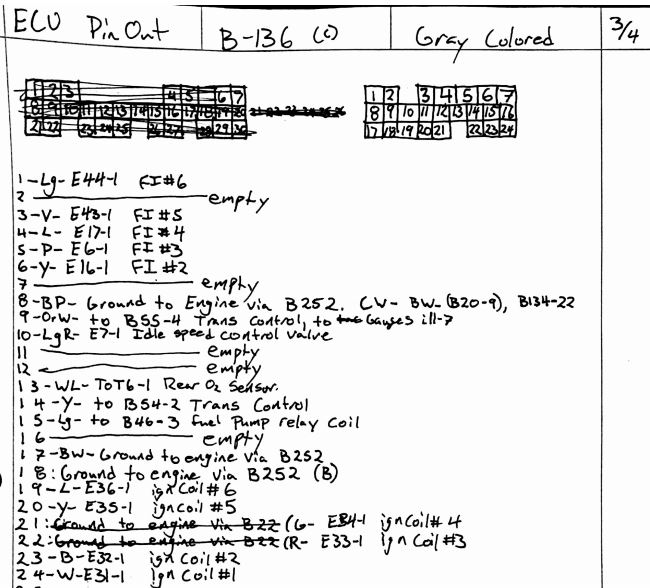 ECU Pin Out B-136 (c) Gray Colored 3/4
1 2 3 4 5 6 7
8 9 10 11 12 13 14 15 16 17 18 19 20 21 22 23 24 25 26
2 22 23 24 25 26 27 28 29 30
1 2 3 4 5 6 7
8 9 10 11 12 13 14 15 16
17 18 19 20 21 22 23 24
1-Lg- E44-1 FI#6
2 empty
3-V- E43-1 FI#5
4-L- E17-1 FI#4
5-P- E6-1 FI#3
6-Y- E16-1 FI#2
7 empty
8-BP- Ground to Engine via B252. CW- BW-(B20-9), B134-22
9-OrW- to B55-4 Trans Control, to Gauges ill-7
10-LgR- E7-1 Idle speed control valve
11 empty
12 empty
13-WL- To T6-1 Rear O2 Sensor.
14-Y- to B54-2 Trans Control
15-Lg- to B46-3 Fuel Pump relay coil
16 empty
17-BW-Ground to engine via B252
18:Ground to engine via B252 (B)
19-L-E36-1 ign Coil#6
20-Y- E35-1 ign coil #5
21:Ground to engine via B22 (G- E34-1 ign Coil# 4
22:Ground to engine via B22 (R- E33-1 ign Coil #3
23-B-E32-1 ign Coil #2
24-W-E31-1 ign Coil #1